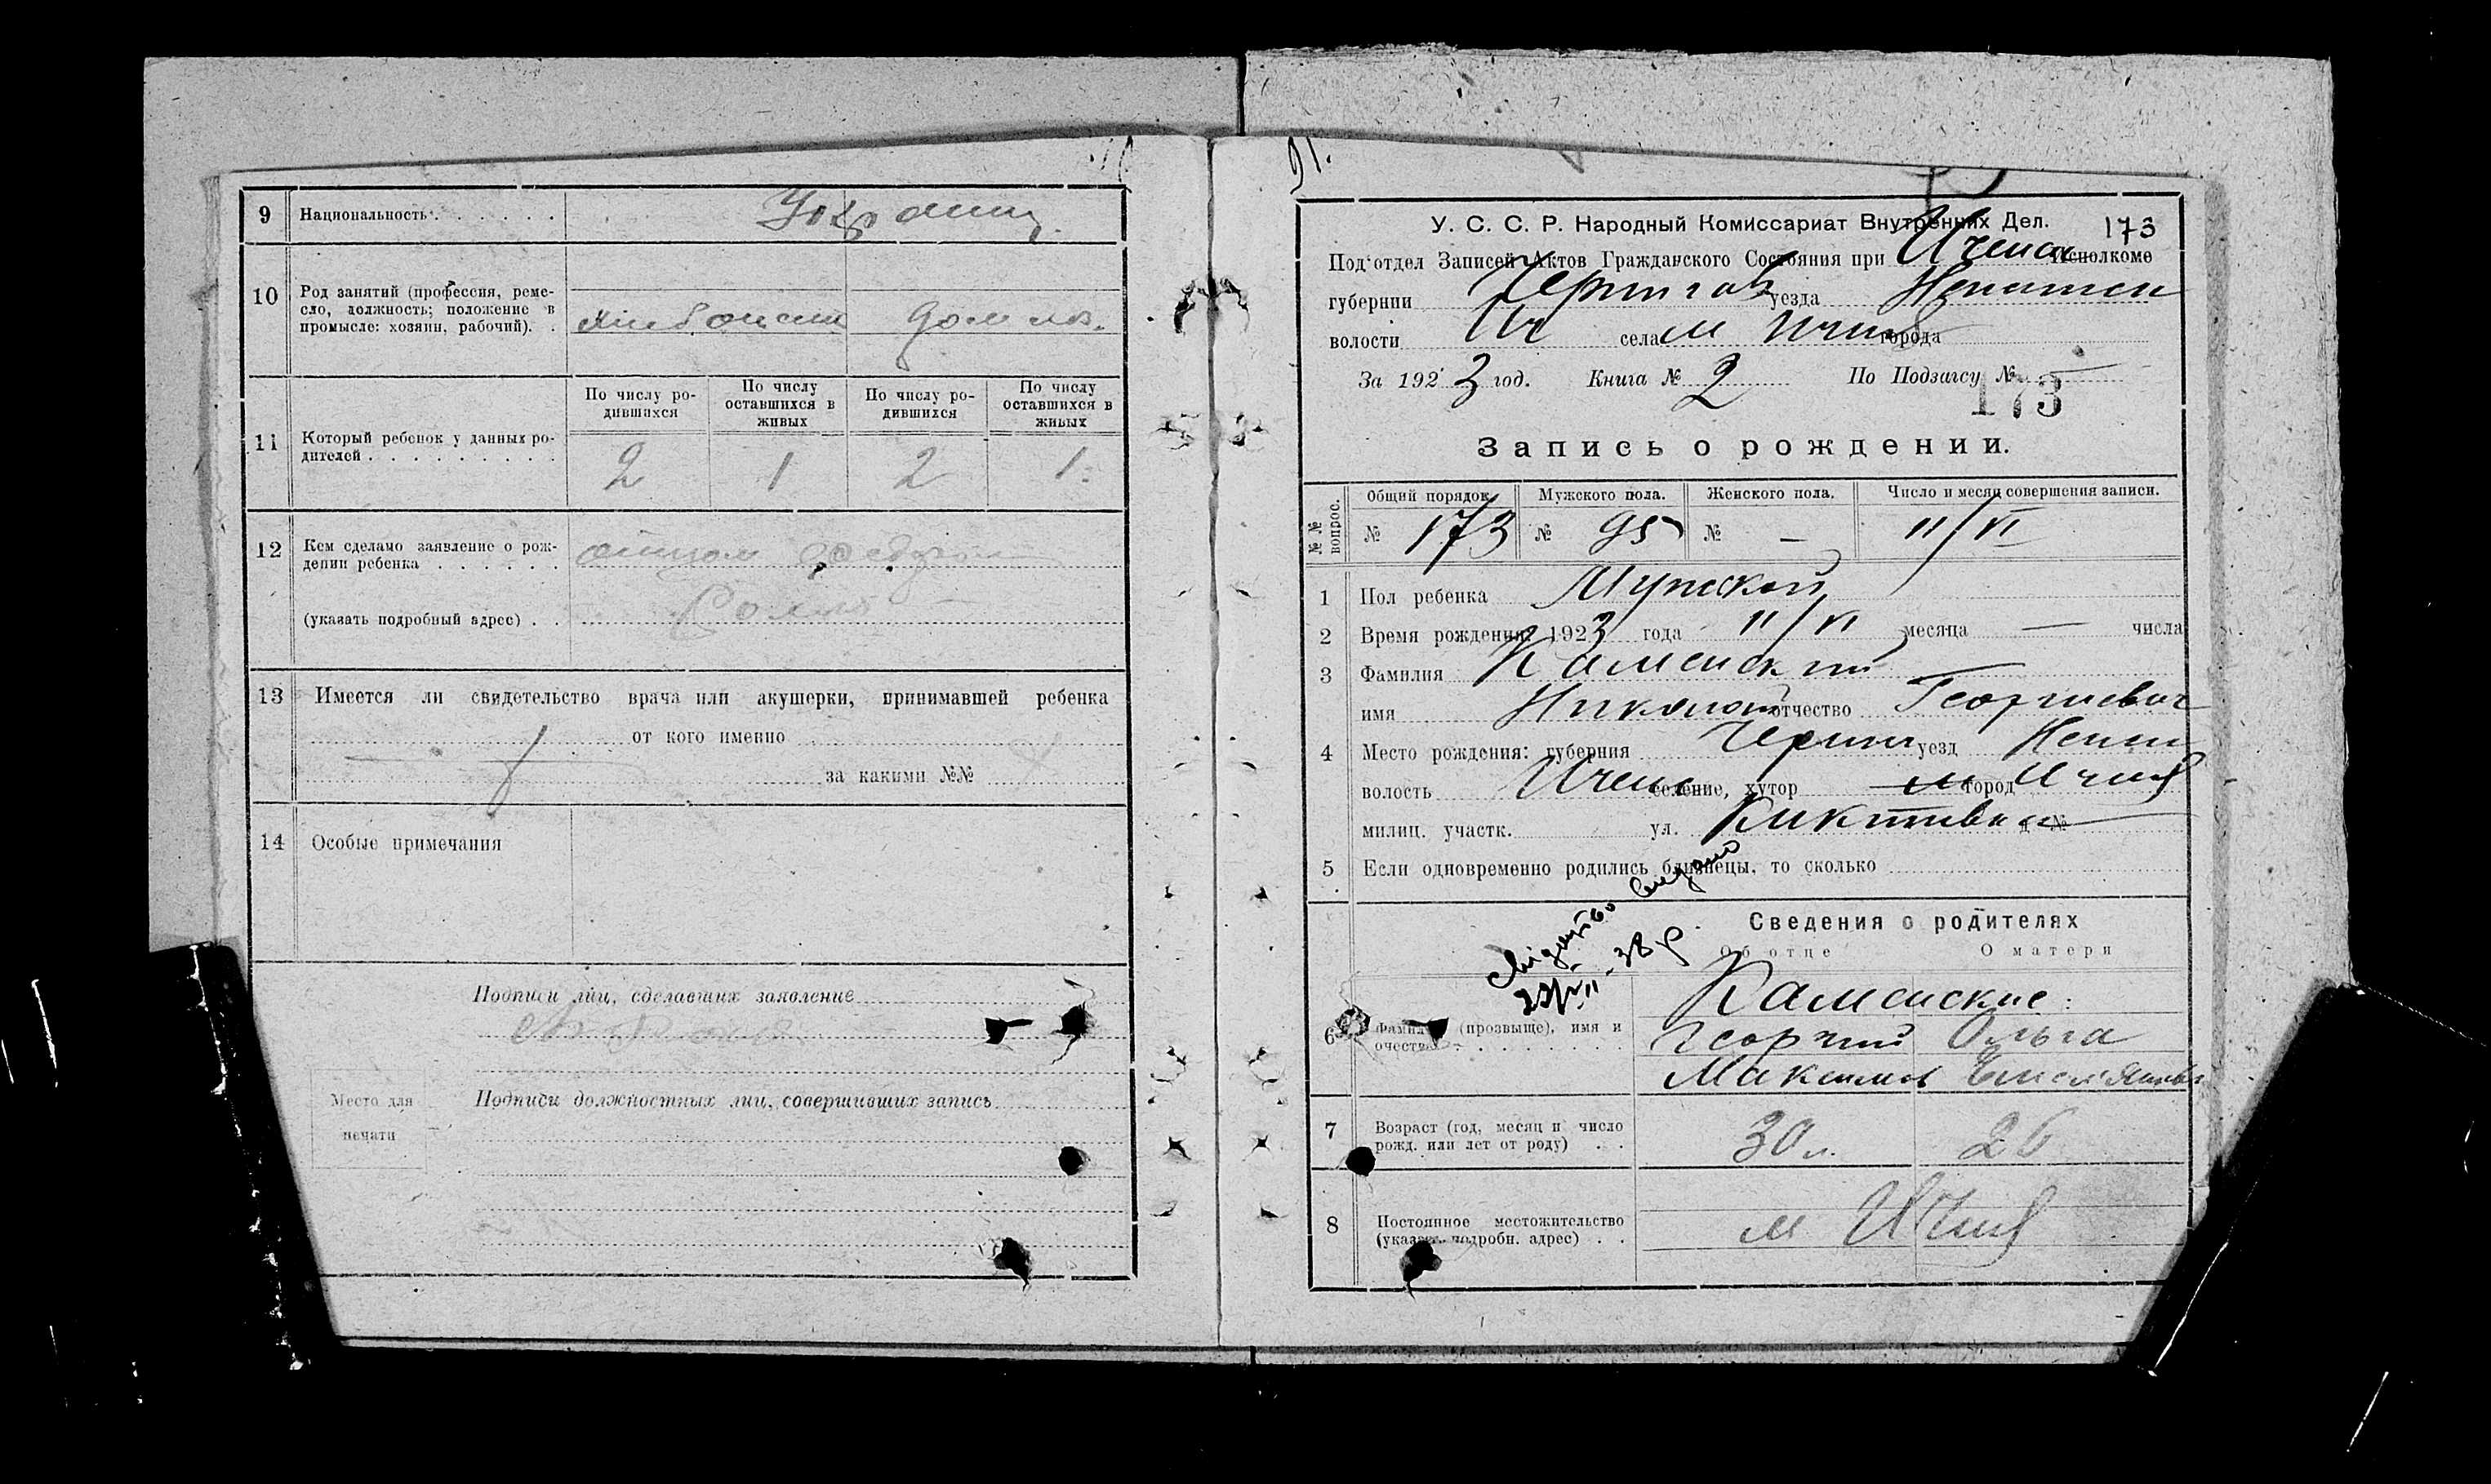 9 Национальность
10 Род занятий (профессия, реме-
сло, должность; положение в
промысле: хозяин, рабочий).
дом хоз.
11 Который ребенок у данных ро-
дителей
По числу ро-
дившихся
По числу
оставшихся в
живых
По числу ро-
дившихся
По числу
оставшихся в
живых
2 1 2 1
12 Кем сделано заявление о рож-
дении ребенка
отцом
(указать подробный адрес)
13 Имеется ли свидетельство врача или акушерки, принимавшей ребенка
от кого именно
за какими №№
14 Особые примечания
Подписи лиц, сделавших заявление
Место для
печати
Подписи должностных лиц, совершивших запись
91.
У. С. С. Р. Народный Комиссариат Внутренних Дел. 173
Под'отдел Записей Актов Гражданского Состояния при Иченск Исполкоме
губернии Чернигов уезда
волости Ич села м Ичня города
За 1923 год. Книга № 2 По Подзагсу № —
173
Запись о рождении.
№№ вопрос.
Общий порядок. Мужского пола. Женского пола. Число и месяц совершения записи.
№ 173 № 95 № — 11/VI
1 Пол ребенка Мужской
2 Время рождения: 1923 года 11/VI месяца — числа
3 Фамилия Каменский
имя Николай отчество Георгиевич
4 Место рождения: губерния Черниг уезд Нежин
волость Иченс селение, хутор м город Ичня
милиц. участк. ул. д №
5 Если одновременно родились близнецы, то сколько
38 р.
Сведения о родителях
Об отце О матери
6 Фамилия (прозвыще), имя и
очество
Каменские:
Георгий Ольга
Максимов Емельяновн
7 Возраст (год, месяц и число
рожд. или лет от роду)
30 л. 26
8 Постоянное местожительство
(указать подробн. адрес)
м Ичня